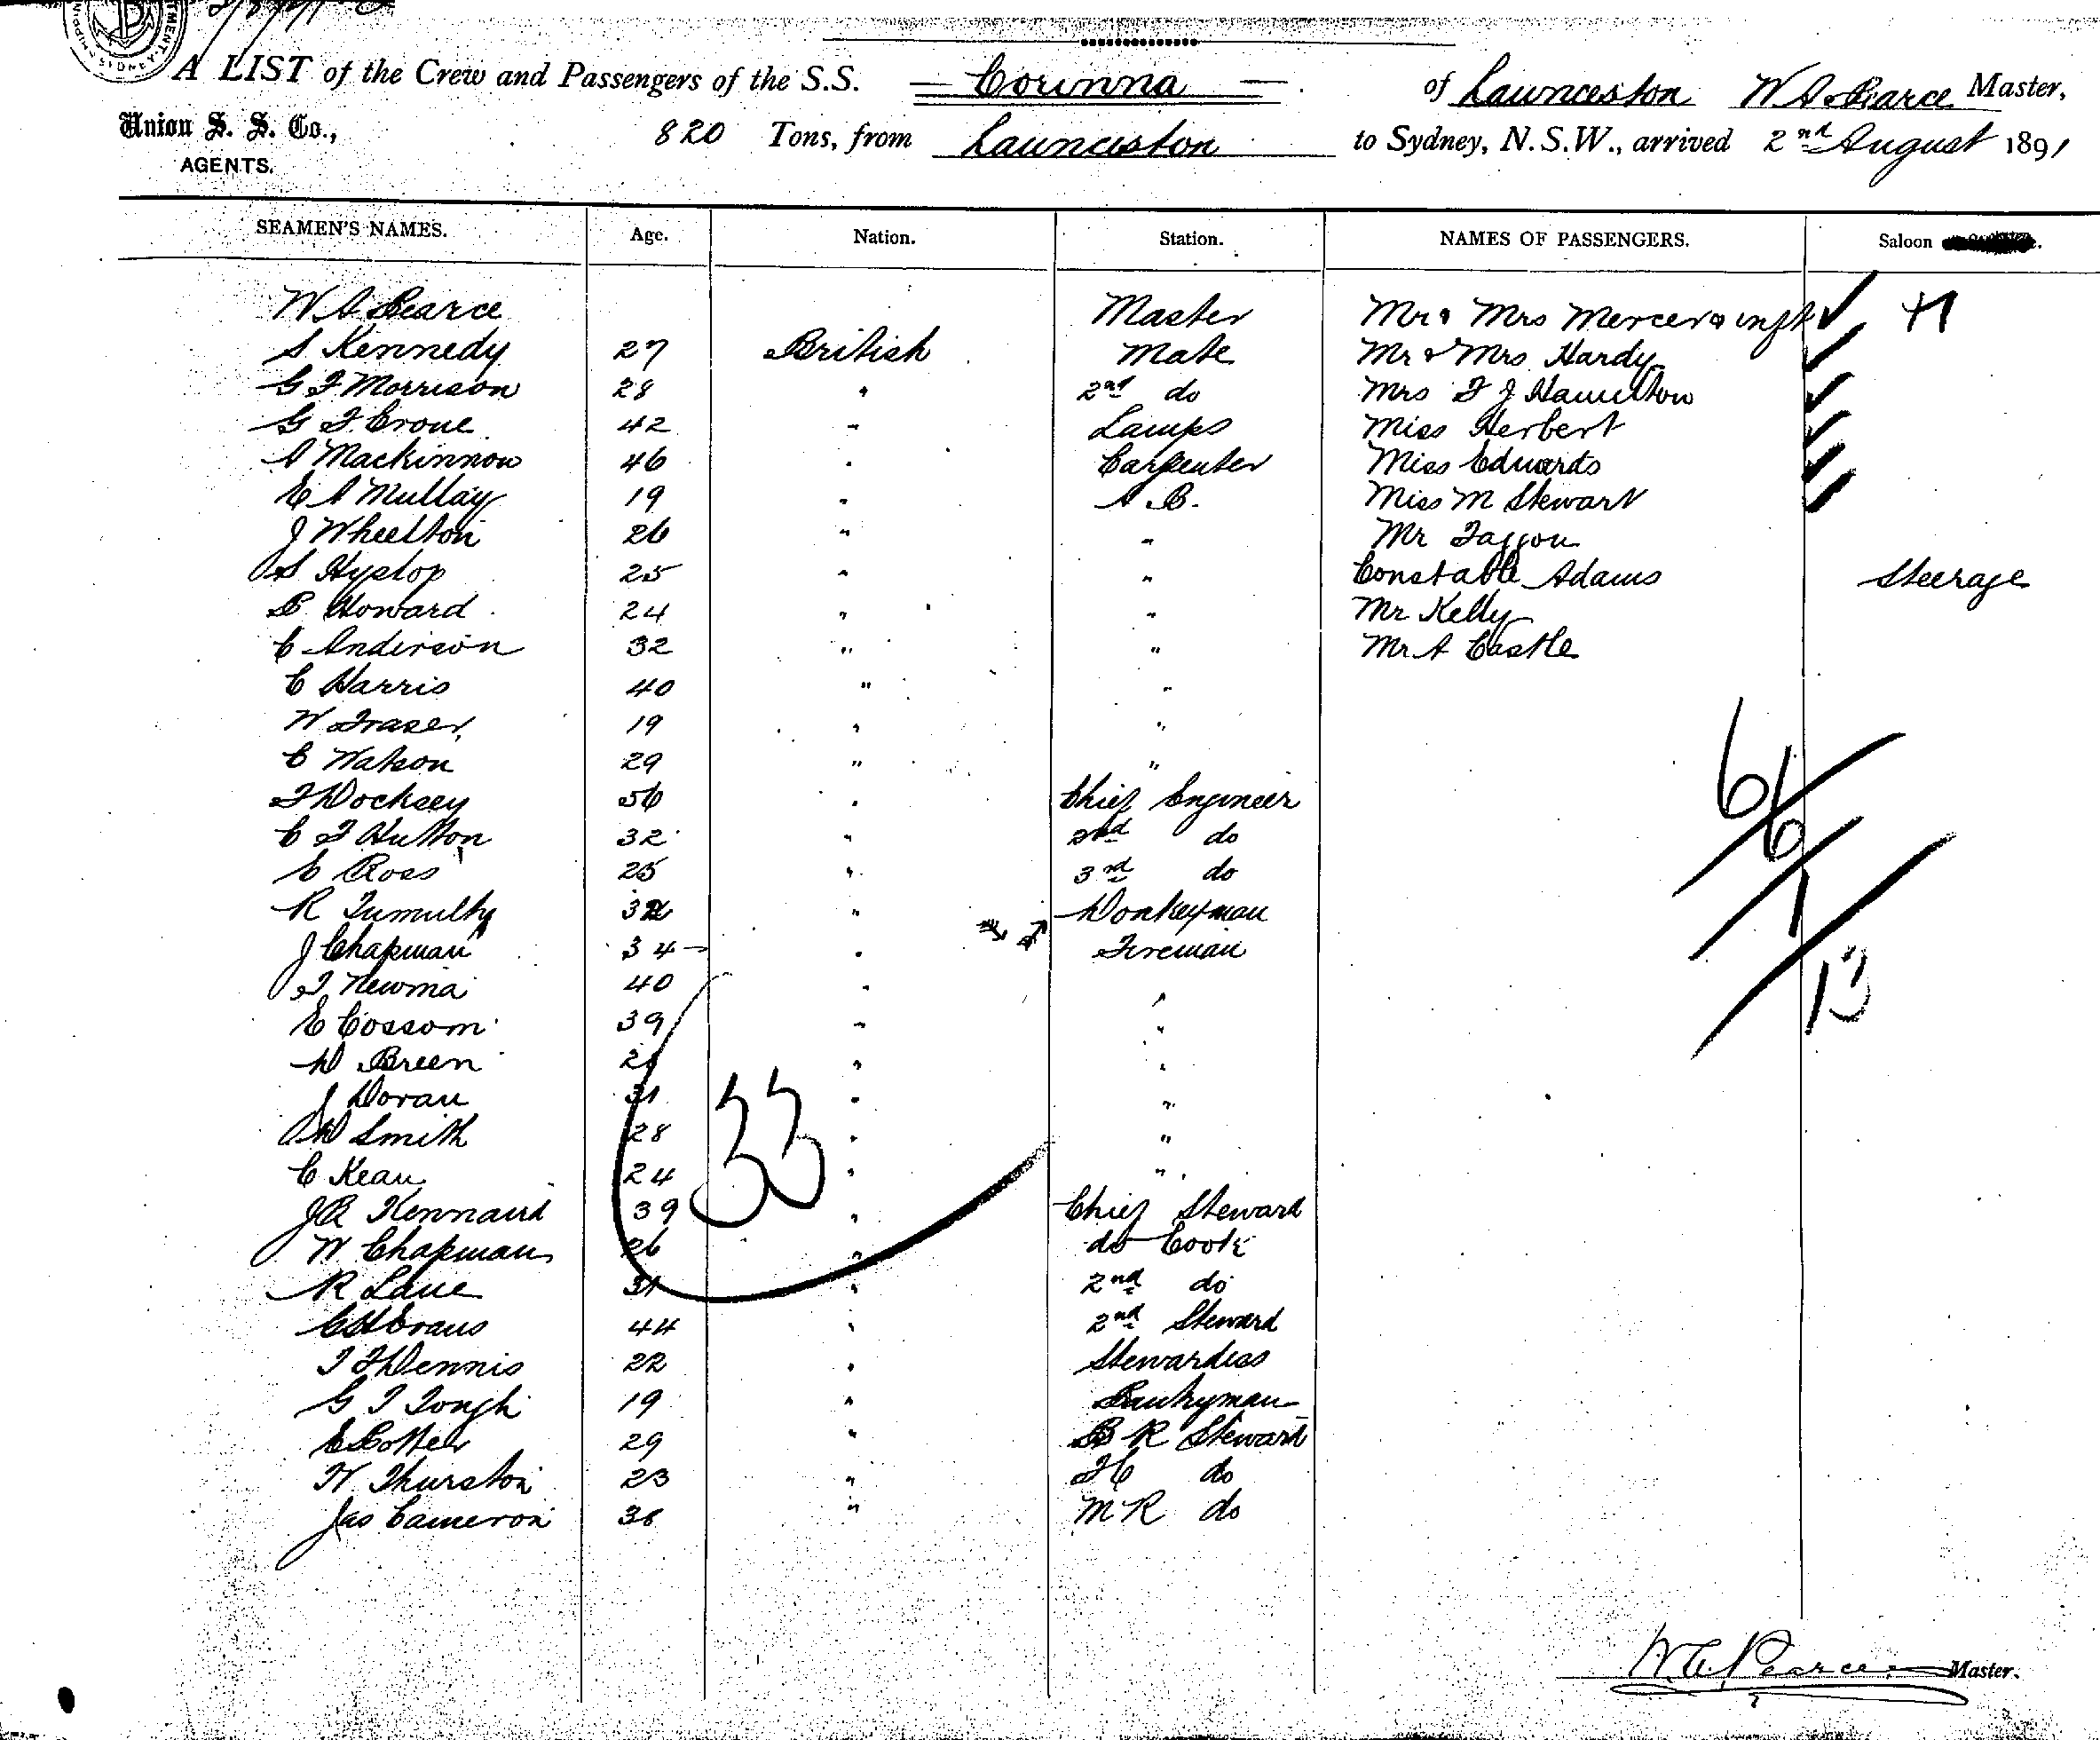 A LIST of the Crew and Passengers of the S.S. Corinna of Launceston W A Pearce Master,
Union S. S. Co., AGENTS. 820 Tons, from Launceston to Sydney, N.S.W., arrived 2nd August 1891
SEAMEN'S NAMES. Age. Nation. Station. NAMES OF PASSENGERS. Saloon
W A Pearce Master Mr & Mrs Mercer & inft
S Kennedy 27 British Mate Mr & Mrs Hardy
G F Morrison 28 " 2nd do Mrs F J Hamilton
G F Crone 42 " Lamps Miss Herbert
A Mackinnon 46 " Carpenter Miss Edwards
E A Mullay 19 " A B. Miss M Stewart
J Wheelton 26 " " Mr
S Hyslop 25 " " Constable Adams Steerage
P Howard 24 " " Mr Kelly
C Anderson 32 " " Mr A Castle
C Harris 40 " "
W Fraser 19 " "
C Watson 29 " "
F Docksey 56 " Chief Engineer
C F Hutton 32 " 2nd do
E Ross 25 " 3rd do
R Tumulty " Donkeyman
J Chapman 34 " Fireman
T Newma 40 " "
E Cossom 39 " "
D Breen " "
J Doran 31 " "
W Smith 28 " "
C Kean 24 " "
J R Kennaird 39 " Chief Steward
W Chapman 26 " do Cook
R Lane 31 " 2nd do
C H Evans 44 " 2nd Steward
T F Dennis 22 " Stewardess
G T Tough 19 " Pantryman
E Cotter 29 " B R Steward
W Thurston 23 " F C do
Jas Cameron 38 " M R do
33
6
6
1
13
W A Pearce Master.